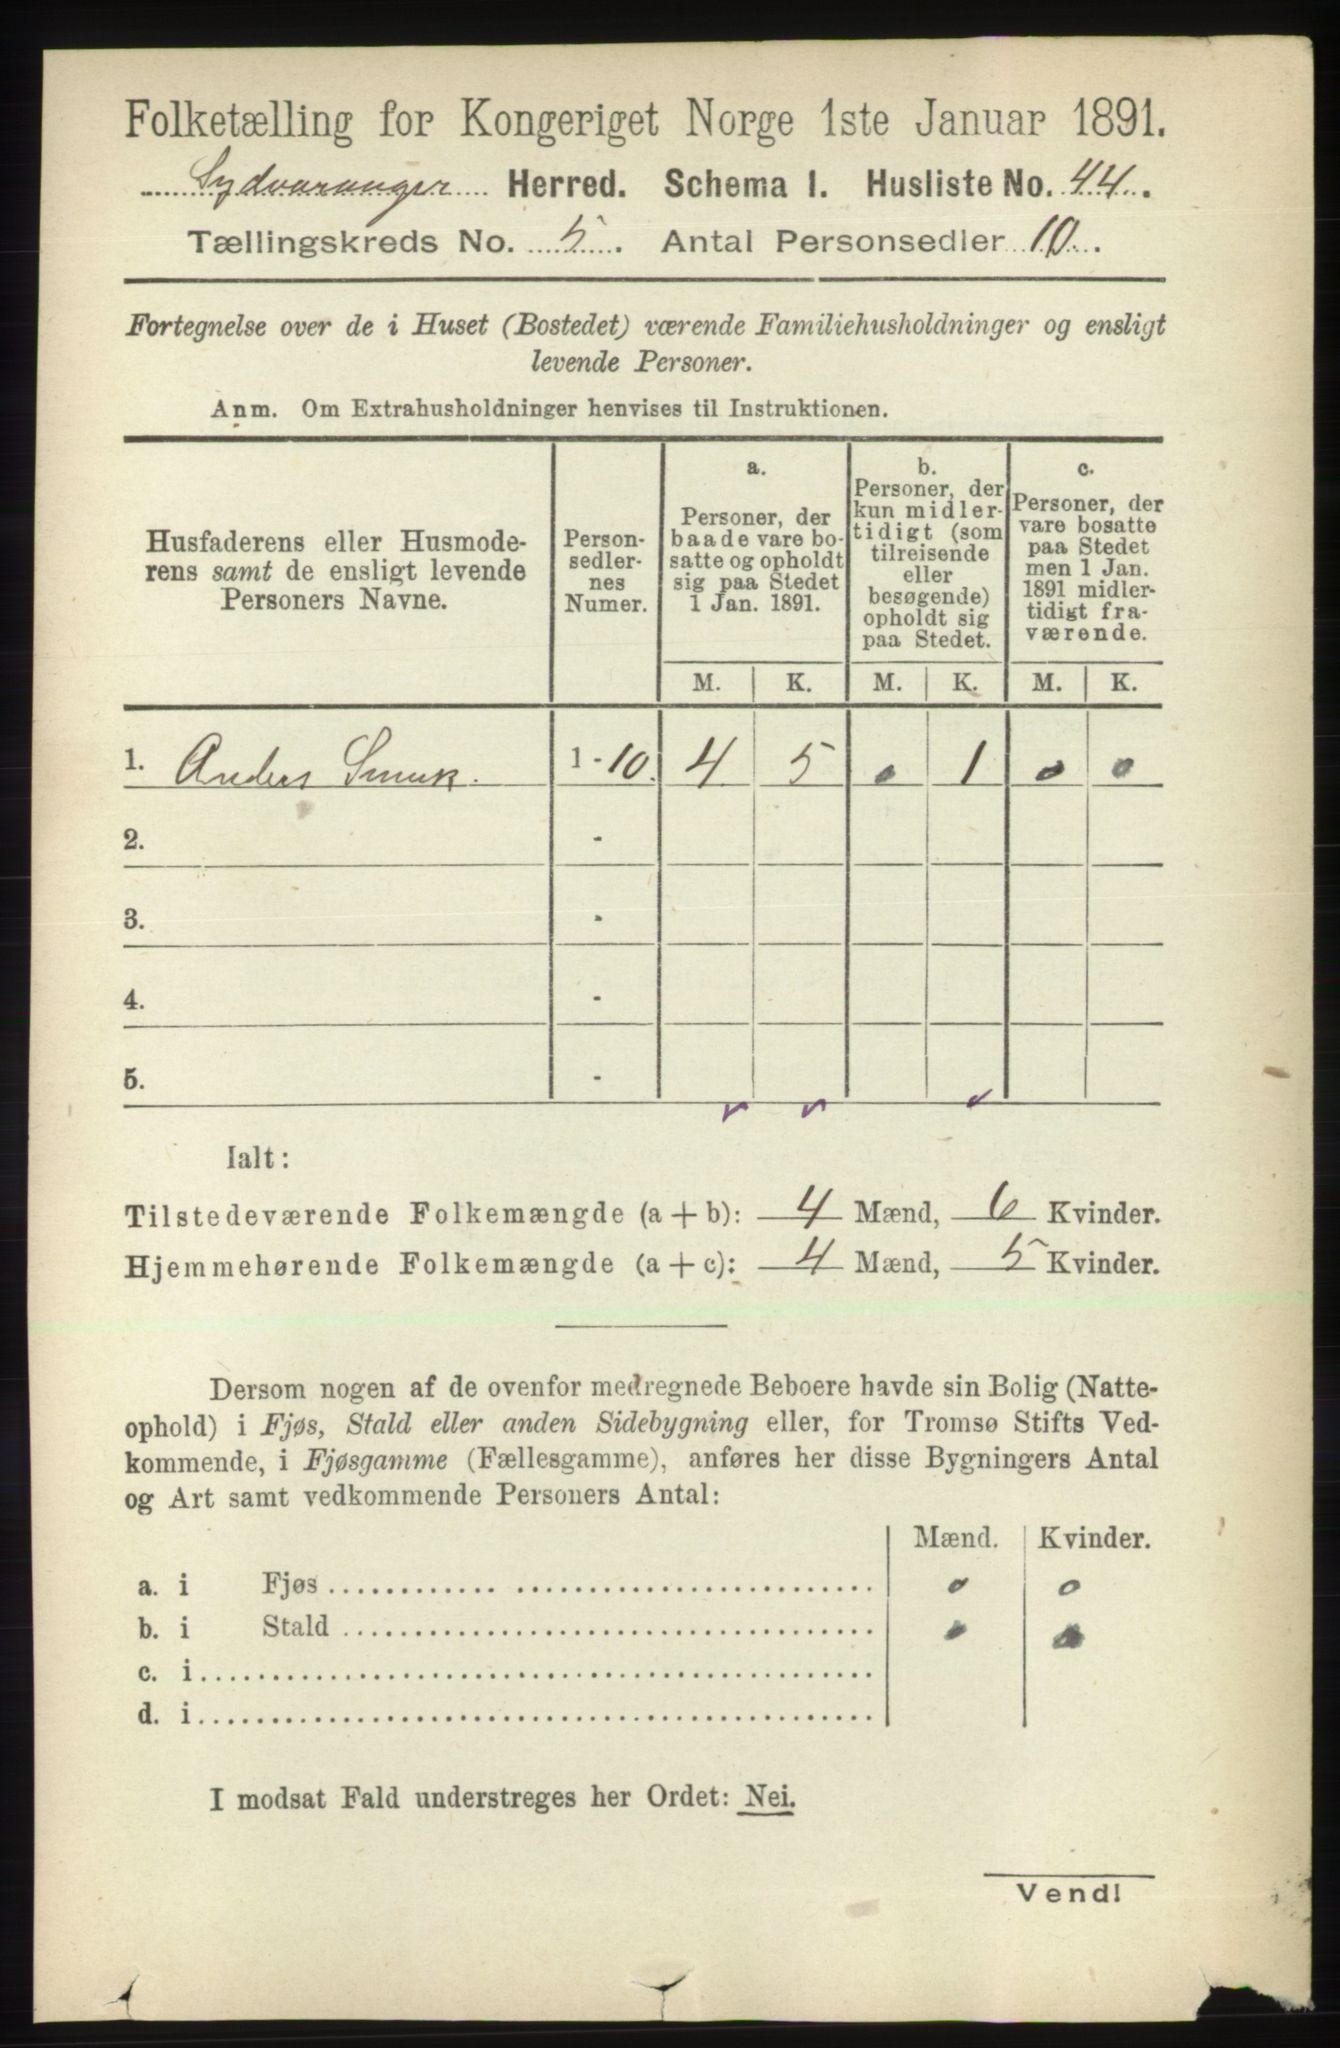 Folketælling for Kongeriget Norge 1ste Januar 1891.
Sydvaranger Herred. Schema I. Husliste No. 44.
Tællingskreds No. 5. Antal Personsedler 10.
Fortegnelse over de i Huset (Bostedet) værende Familiehusholdninger og ensligt
levende Personer.
Anm. Om Extrahusholdninger henvises til Instruktionen.
Husfaderens eller Husmode-
rens samt de ensligt levende
Personers Navne.
Person-
sedler-
nes
Numer.
a.
Personer, der
baade vare bo-
satte og opholdt
sig paa Stedet
1 Jan. 1891.
b.
Personer, der
kun midler-
tidigt (som
tilreisende
eller
besøgende)
opholdt sig
paa Stedet.
c.
Personer, der
vare bosatte
paa Stedet
men 1 Jan.
1891 midler-
tidigt fra-
værende.
M. K. M. K. M. K.
1. Anders Smuk. 1-10. 4 5 0 1 0 0
2. -
3. -
4. -
5. -
Ialt:
Tilstedeværende Folkemængde (a + b): 4 Mænd, 6 Kvinder.
Hjemmehørende Folkemængde (a + c): 4 Mænd, 5 Kvinder.
Dersom nogen af de ovenfor medregnede Beboere havde sin Bolig (Natte-
ophold) i Fjøs, Stald eller anden Sidebygning eller, for Tromsø Stifts Ved-
kommende, i Fjøsgamme (Fællesgamme), anføres her disse Bygningers Antal
og Art samt vedkommende Personers Antal:
Mænd. Kvinder.
a. i Fjøs 0 0
b. i Stald 0 0
c. i
d. i
I modsat Fald understreges her Ordet: Nei.
Vend!